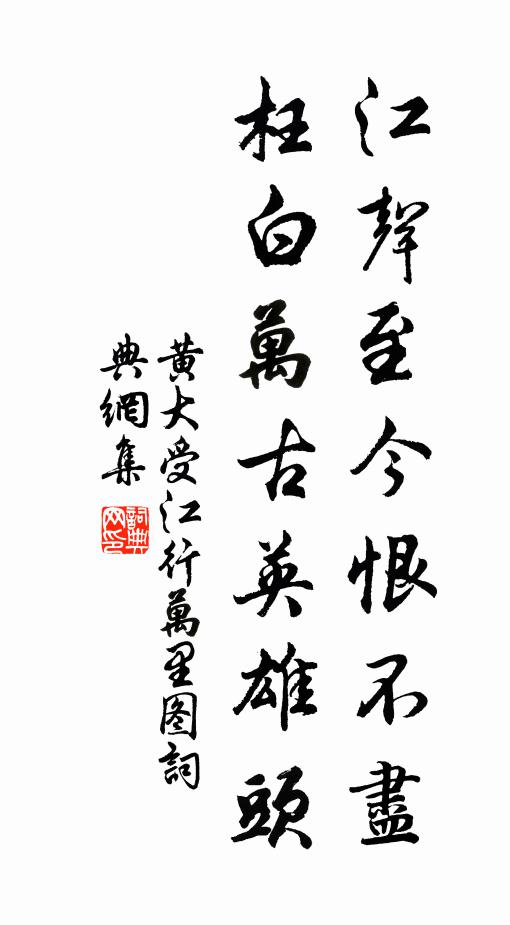 江聲至今恨不盡
枉白萬古英雄頭
黃大受江行萬里图詞
典網集
詞典
网印